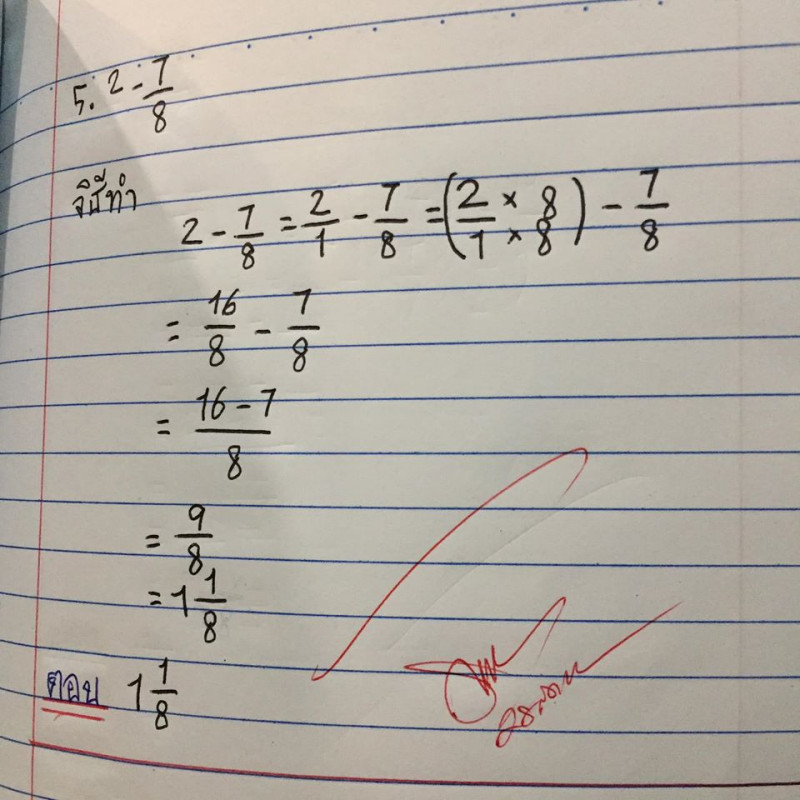 5. 2 - 7/8
วิธีทำ
2 - 7/8 = 2/1 - 7/8 = (2 × 8 / 1 × 8) - 7/8
= 16/8 - 7/8
= 16 - 7 / 8
= 9/8
= 1 1/8
ตอบ 1 1/8